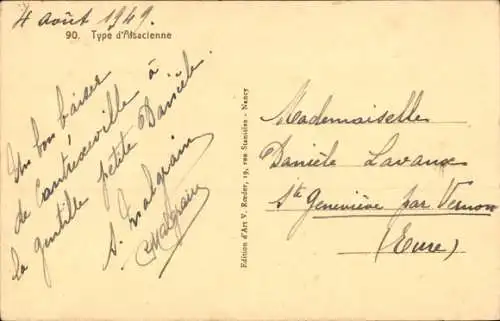 4 août 1949.
90. Type d'Alsacienne
Un bon baiser
de Contrexeville à
la gentille petite Danièle.
S. Malgrain
Malgrain
Edition d'Art V. Rœder, 19, rue Stanislas - Nancy
Mademoiselle
Danièle Lavaux
Ste Geneviève par Vernon
(Eure)